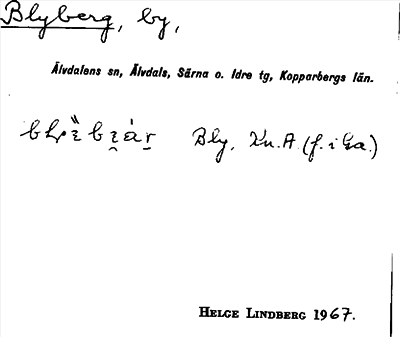 Blyberg, by,
Älvdalens sn, Älvdals, Särna o. Idre tg, Kopparbergs län.
Bly, Kn. A. (f. i Ea.)
HELGE LINDBERG 1967.